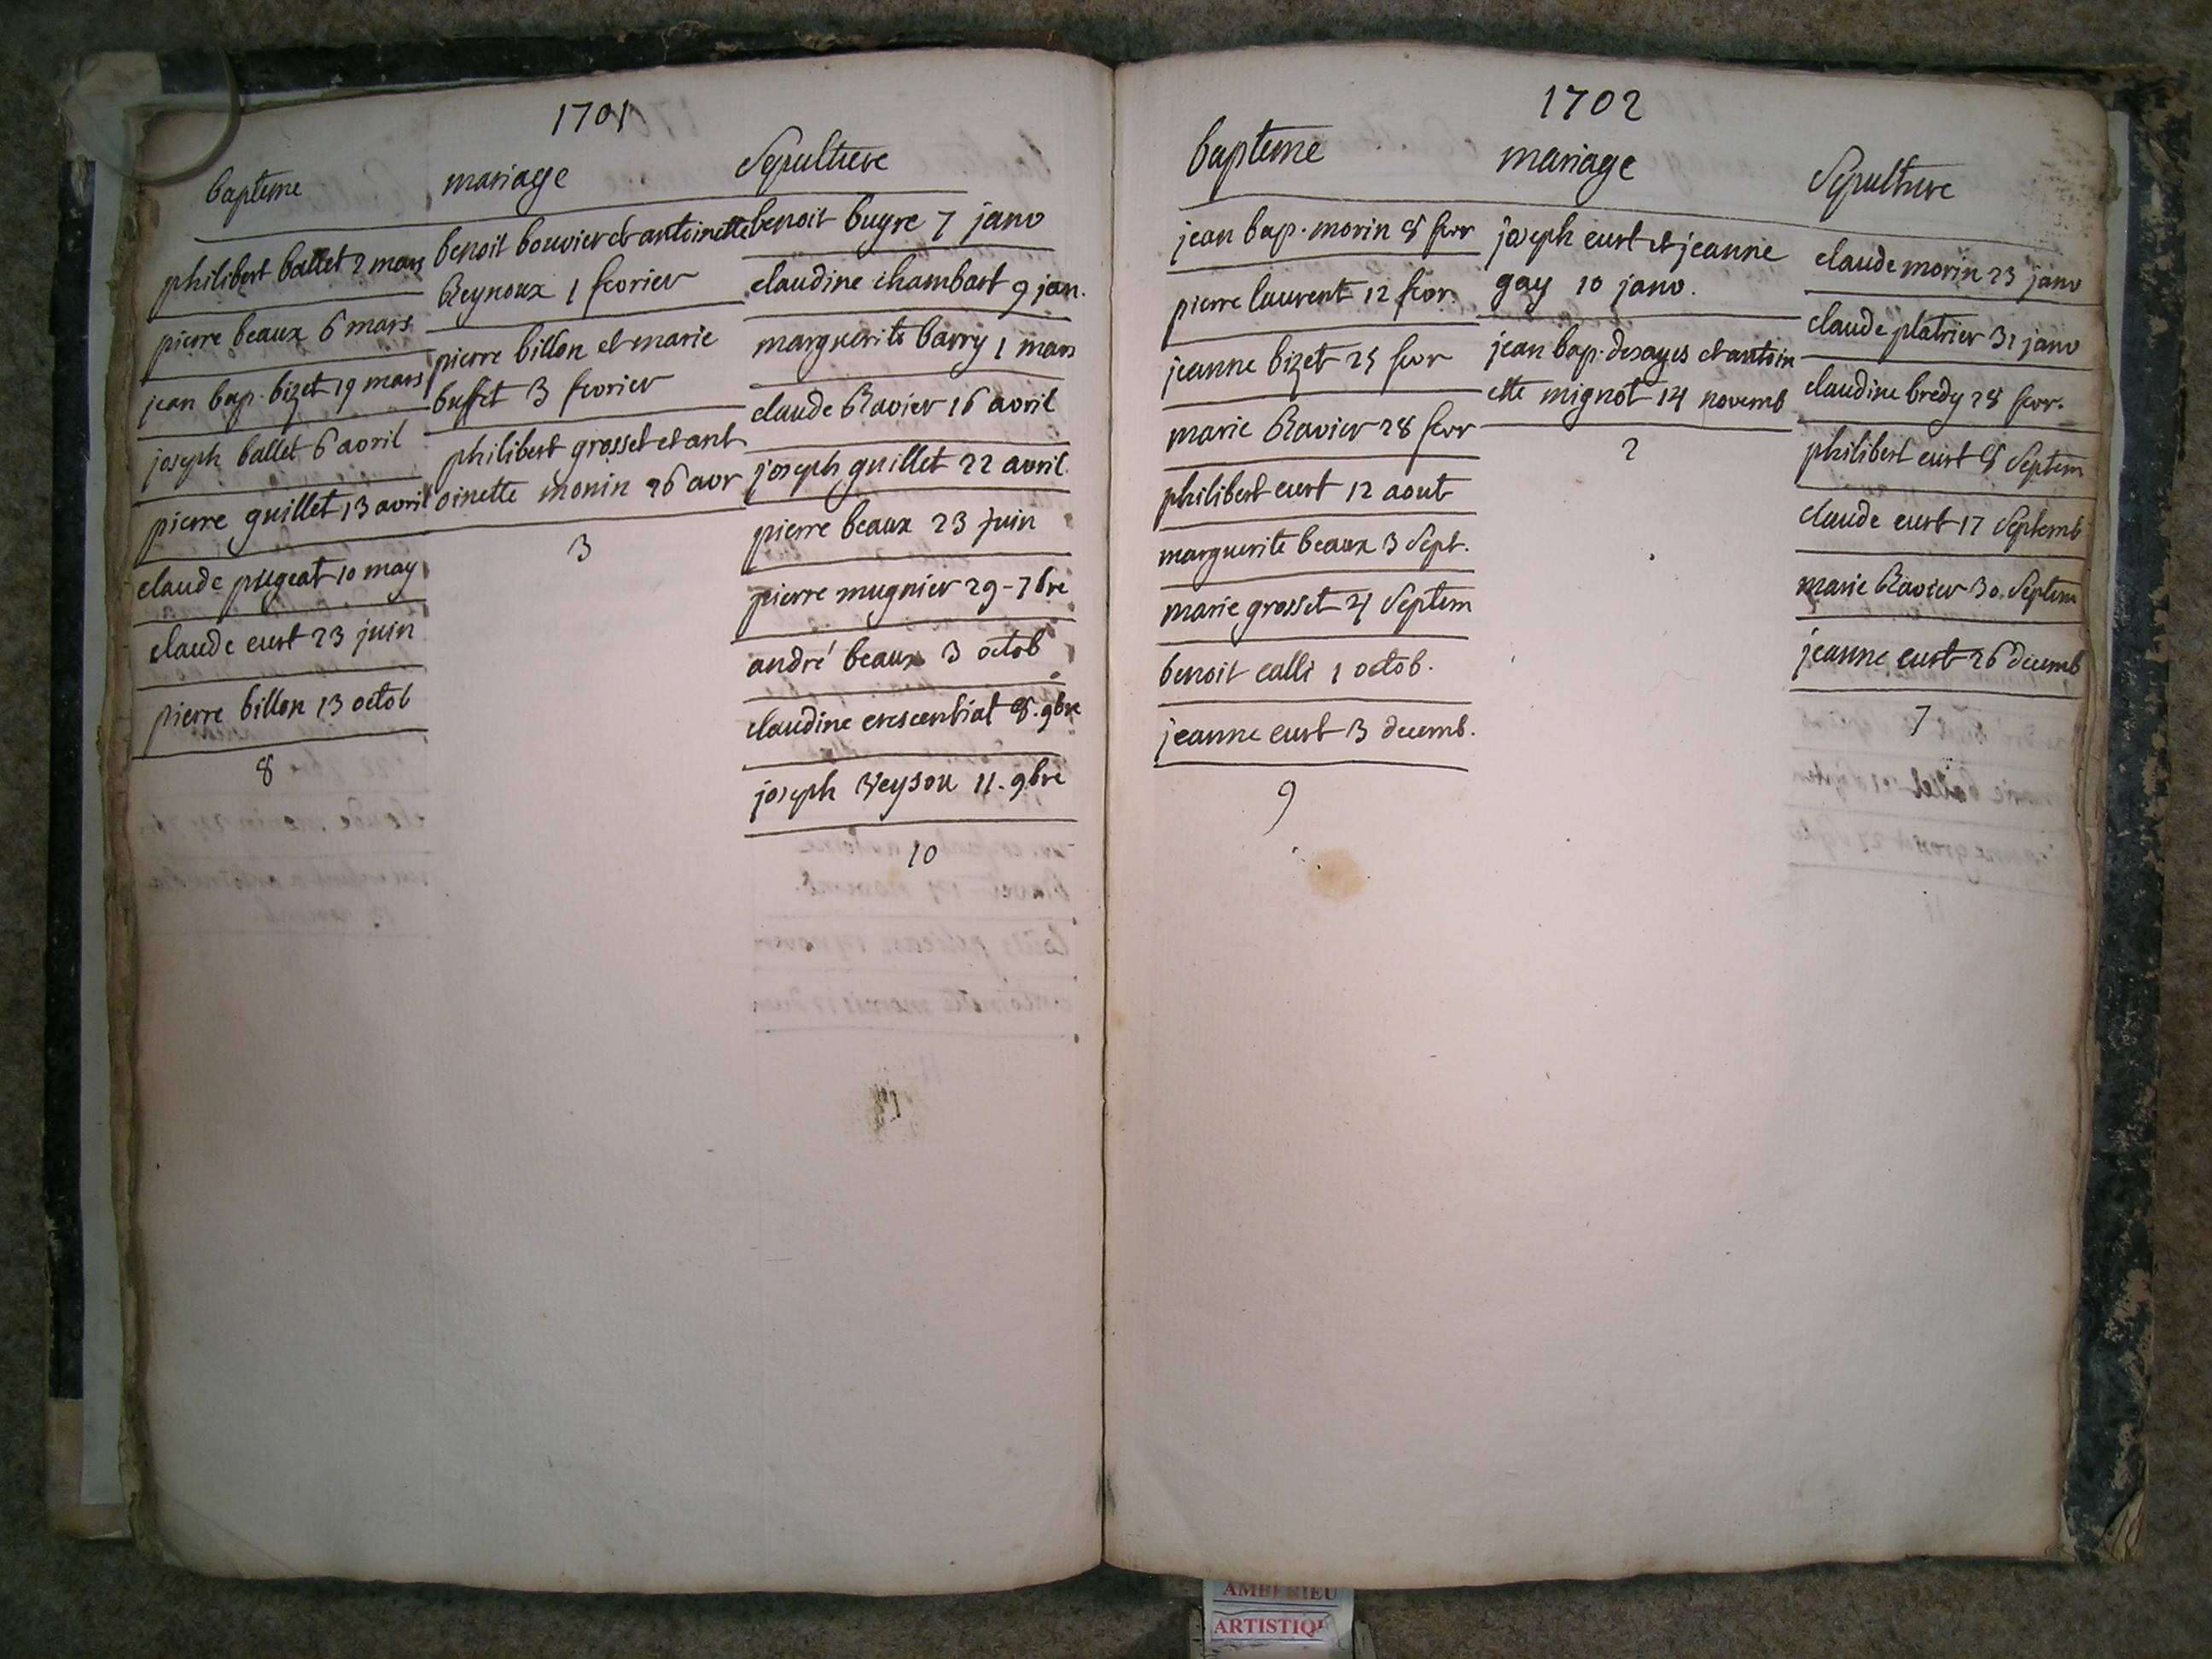 1701
bapteme
philibert ballet 2 mars
pierre beaux 6 mars
jean bap. bizet 19 mars
joseph ballet 6 avril
pierre guillet 13 avril
claude pugeat 10 may
claude eust 23 juin
pierre billon 13 octob
8
mariage
benoit bouvier et antoinette
Reynoux 1 fevrier
pierre billon et marie
buffet 3 fevrier
philibert grosset et ant
oinette monin 26 avr
3
Sepulture
benoit bugre 7 janv
claudine chambart 9 jan.
marguerite barry 1 mars
claude Ravier 16 avril
joseph guillet 22 avril
pierre beaux 23 juin
pierre mugnier 29-7bre
andré beaux 3 octob
claudine crescentiat 8. 9bre
joseph 11. 9bre
10
1702
bapteme
jean bap. morin 8 fevr
pierre laurent 12 fevr.
jeanne bizet 25 fevr
marie Ravier 28 fevr
philibert eust 12 aout
marguerite beaux 3 Sept.
marie grosset 21 Septem
benoit calli 1 octob.
jeanne eust 3 decemb.
9
mariage
joseph eust et jeanne
gay 10 janv.
jean bap. desayes et antoin
ette mignot 14 novemb
2
Sepulture
claude morin 23 janv
claude platrier 31 janv
claudine bredy 28 fevr.
philibert eust 8 Septem
claude eust 17 Septemb
marie Ravier 30. Septem
jeanne eust 26 decemb
7
AMBERIEU